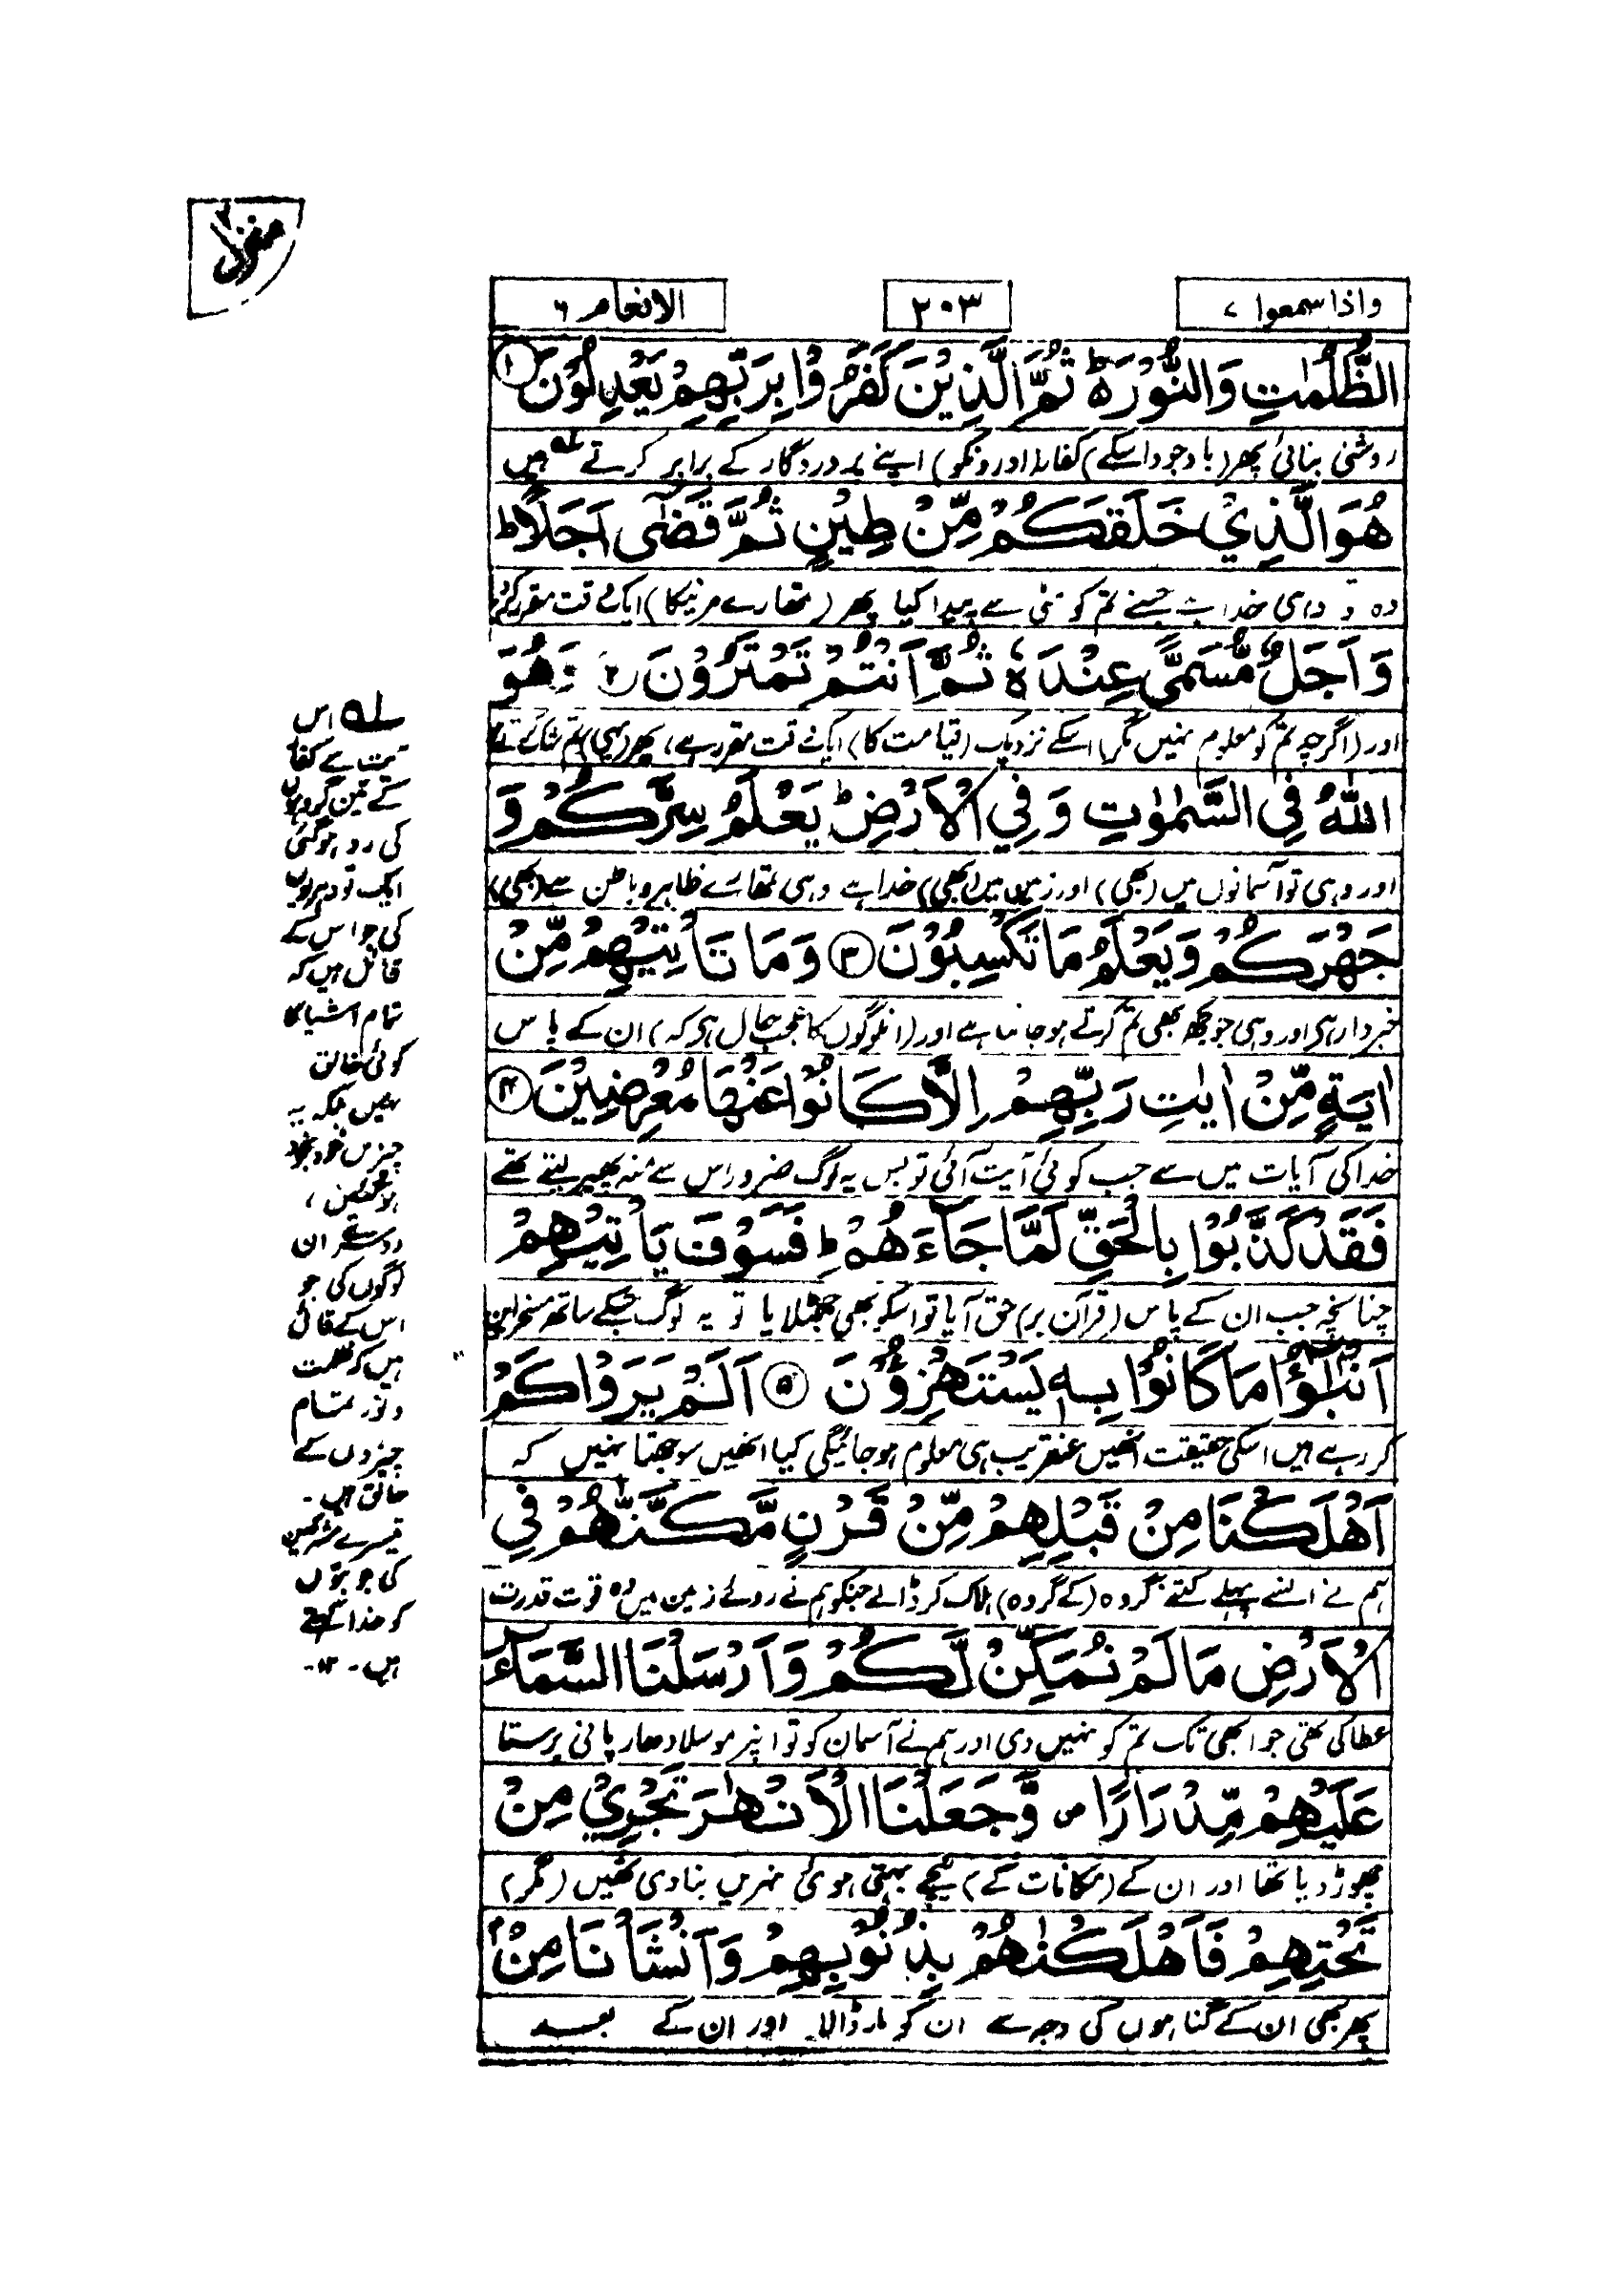 منزل ۲
واذا سمعوا ۷
۲۰۳
الانعام ۶
الظُّلُمٰتِ وَالنُّوْرَ ؕ ثُمَّ الَّذِيْنَ كَفَرُوْا بِرَبِّهِمْ يَعْدِلُوْنَ ۱
روشنی بنائی پھر (باوجود اسکے) کفار (اورونکو) اپنے پروردگار کے برابر کرتے ہیں
هُوَ الَّذِيْ خَلَقَكُمْ مِّنْ طِيْنٍ ثُمَّ قَضٰى اَجَلًا ؕ
وہ تو وہی خدا ہے جسنے تم کو مٹی سے پیدا کیا پھر (تمھارے مرنیکا) ایک وقت مقرر
وَاَجَلٌ مُّسَمًّى عِنْدَهٗ ثُمَّ اَنْتُمْ تَمْتَرُوْنَ ۲ وَهُوَ
اور (اگرچہ تم کو معلوم نہیں مگر) اسکے نزدیک (قیامت کا) ایک وقت مقرر ہے، پھر (بھی) تم شک کرتے
اللّٰهُ فِي السَّمٰوٰتِ وَفِي الْاَرْضِ ؕ يَعْلَمُ سِرَّكُمْ وَ
اور وہی تو آسمانوں میں (بھی) اور زمین میں (بھی) خدا ہے وہی تمھارے ظاہر و باطن سے (بھی)
جَهْرَكُمْ وَيَعْلَمُ مَا تَكْسِبُوْنَ ۳ وَمَا تَاْتِيْهِمْ مِّنْ
خبردار ہی اور وہی جو کچھ بھی تم کرتے ہو جانتا ہے اور (ان لوگوں کا عجب حال ہی کہ) ان کے پاس
اٰيَةٍ مِّنْ اٰيٰتِ رَبِّهِمْ اِلَّا كَانُوْا عَنْهَا مُعْرِضِيْنَ ۴
خدا کی آیات میں سے جب کوئی آیت آئی تو بس یہ لوگ ضرور اس سے منہ پھیر لیتے تھے
فَقَدْ كَذَّبُوْا بِالْحَقِّ لَمَّا جَآءَهُمْ ؕ فَسَوْفَ يَاْتِيْهِمْ
چنانچہ جب ان کے پاس (قرآن بر) حق آیا تو اسکو بھی جھٹلایا تو یہ لوگ جسکے ساتھ مسخراپن
اَنْۢبٰٓؤُا مَا كَانُوْا بِهٖ يَسْتَهْزِءُوْنَ ۵ اَلَمْ يَرَوْا كَمْ
کر رہے ہیں اسکی حقیقت انھیں عنقریب ہی معلوم ہو جائیگی کیا انھیں سوجھتا نہیں کہ
اَهْلَكْنَا مِنْ قَبْلِهِمْ مِّنْ قَرْنٍ مَّكَّنّٰهُمْ فِي
ہم نے ان سے پہلے کتنے گروہ (کے گروہ) ہلاک کر ڈالے جنکو ہم نے روئے زمین میں وہ قوت قدرت
الْاَرْضِ مَا لَمْ نُمَكِّنْ لَّكُمْ وَاَرْسَلْنَا السَّمَآءَ
عطا کی تھی جو ابھی تک تم کو نہیں دی اور ہم نے آسمان کو تو اپنر موسلادھار پانی برستا
عَلَيْهِمْ مِّدْرَارًا ص وَّجَعَلْنَا الْاَنْهٰرَ تَجْرِيْ مِنْ
چھوڑ دیا تھا اور ان کے (مکانات کے) نیچے بہتی ہوئی نہریں بنا دی تھیں (مگر)
تَحْتِهِمْ فَاَهْلَكْنٰهُمْ بِذُنُوْبِهِمْ وَاَنْشَاْنَا مِنْۢ
پھر بھی ان کے گناہوں کی وجہ سے ان کو مار ڈالا اور ان کے بعد
لہ اس
آیت سے کفار
کے تین گروہوں
کی رد ہوگئی
ایک تو دہریوں
کی جو اس کے
قائل ہیں کہ
تمام اشیا کا
کوئی خالق
نہیں بلکہ یہ
چیزیں خود بخود
ہو گئیں،
دوسرے ان
لوگوں کی جو
اس کے قائل
ہیں کہ ظلمت
و نور تمام
چیزوں کے
خالق ہیں۔
تیسرے مشرکین
کی جو بتوں
کو خدا کہتے
ہیں۔ ۱۲۔